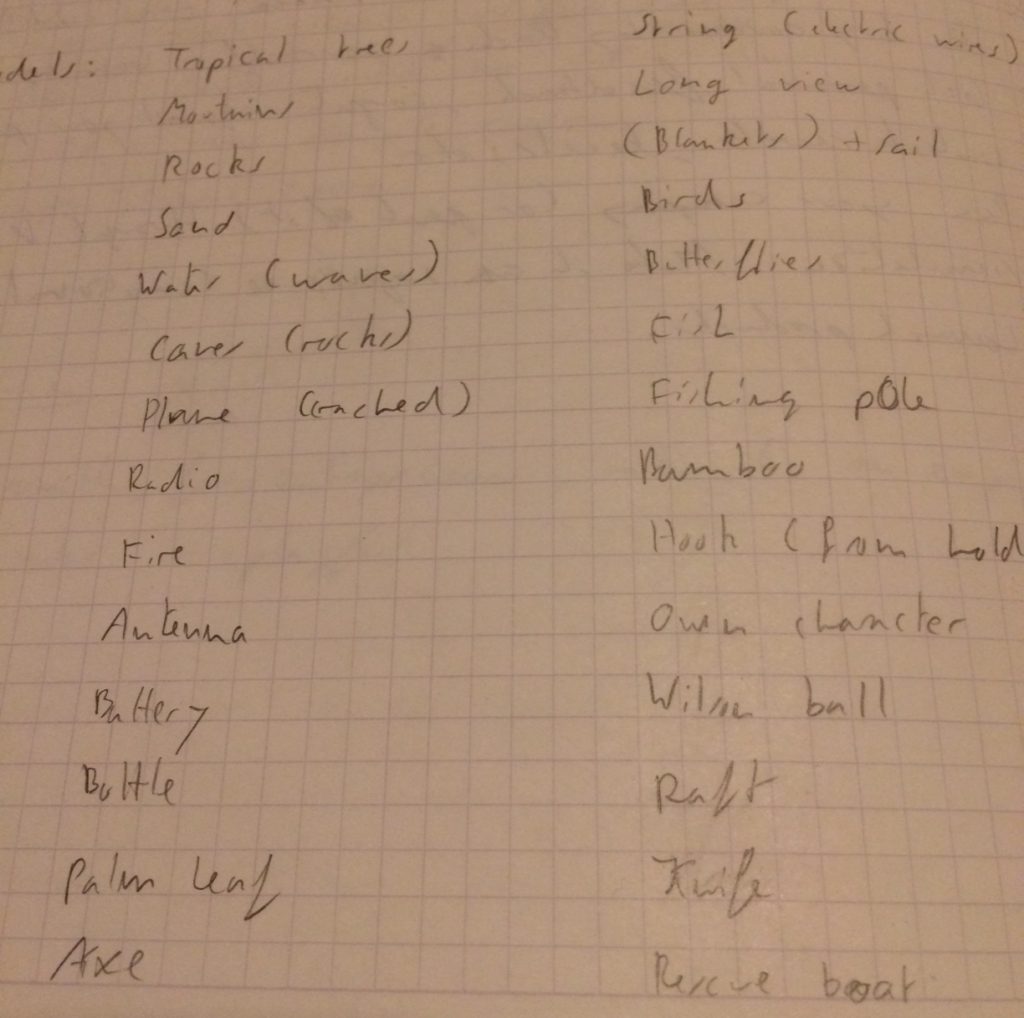 odels: Tropical trees
Mountains
Rocks
Sand
Water (waves)
Caves (rocks)
Plane (crached)
Radio
Fire
Antenna
Battery
Bottle
Palm leaf
Axe
String (electric wires)
Long view
(Blankets) + sail
Birds
Butterflies
Fish
Fishing pole
Bamboo
Hook (from hold
Owen character
Wilson ball
Raft
Knife
Rescue boat